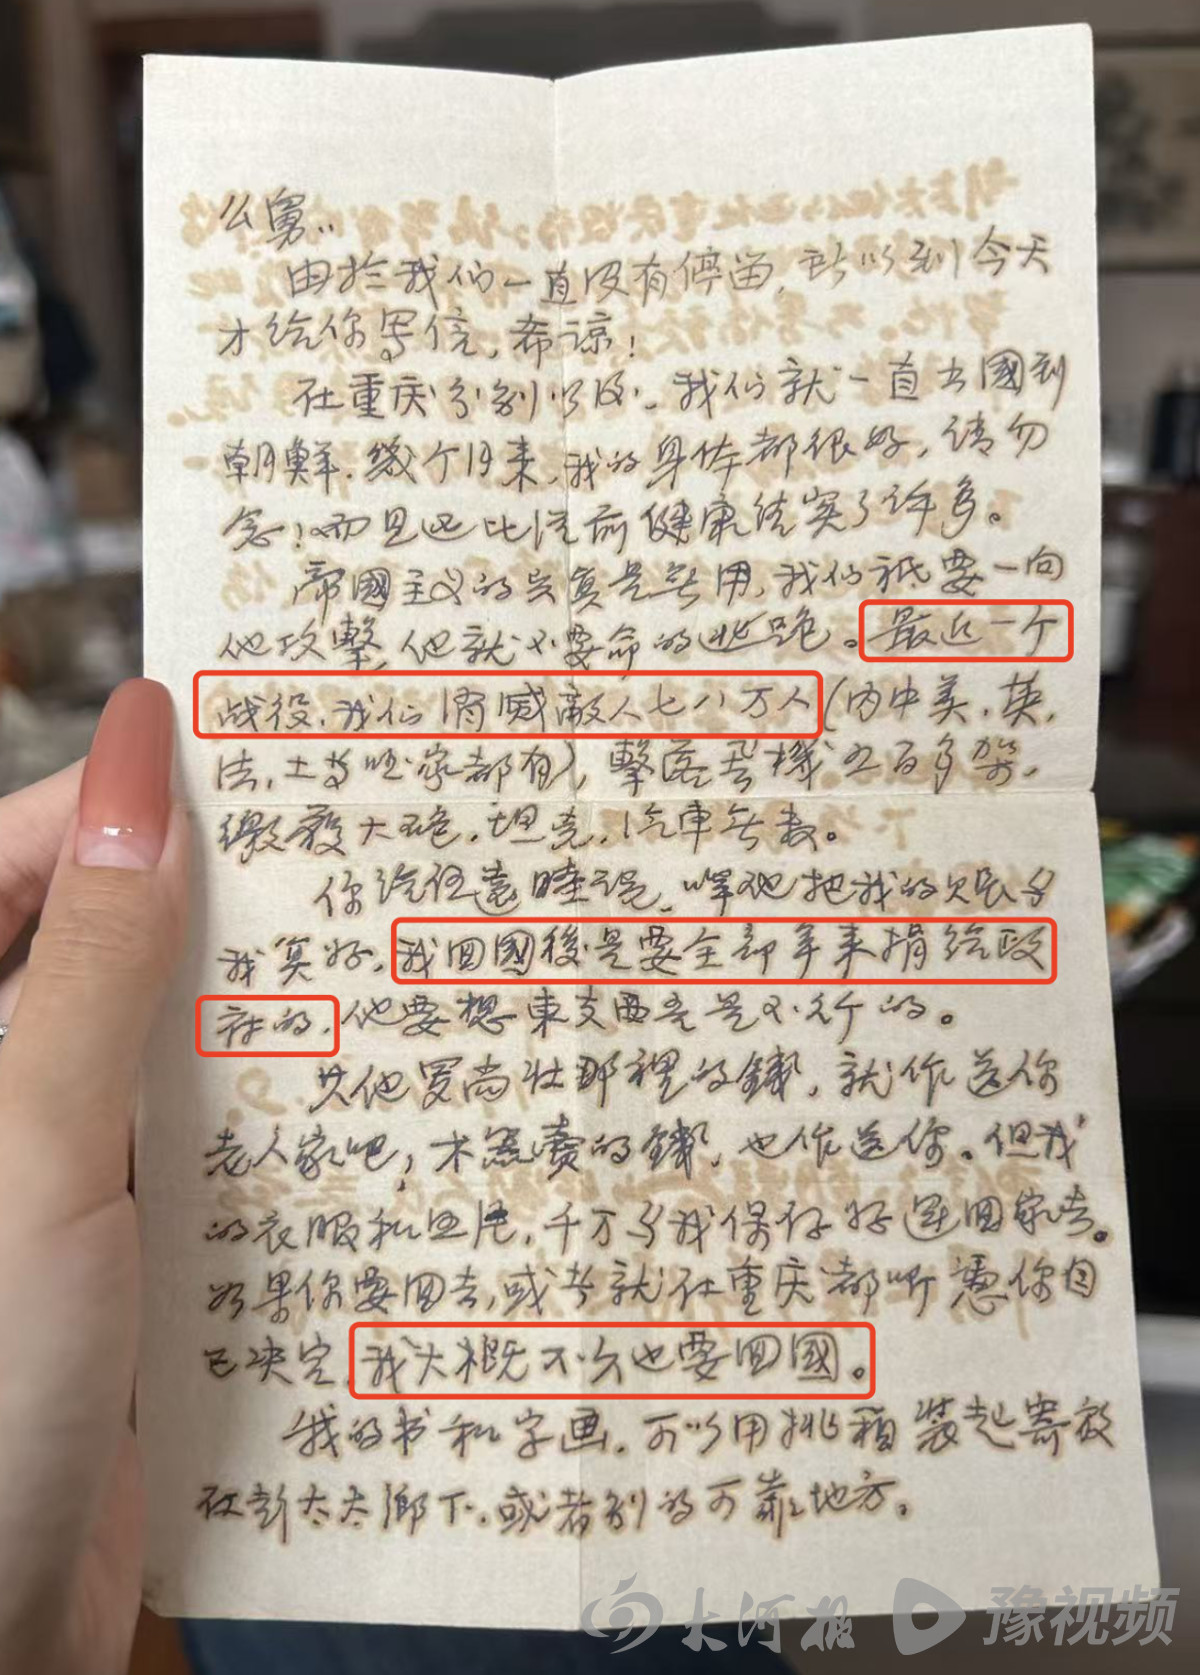 么舅：
由於我们一直没有停留，所以到今天
才给你写信，希谅！
在重庆分别以后，我们就一直出國到
朝鲜．幾个月来，我的身体都很好，请勿
念！而且还比從前健康结实了许多。
帝國主义的兵真是無用，我们祗要一向
他攻擊，他就不要命的逃跑。最近一个
战役，我们消滅敌人七八万人（内中美，英，
法，土等国家都有），擊落飞機五百多架，
缴获大砲．坦克，汽車無数。
你给任遠 说，单他把我的 
我算好，我回國後是要全部拿来捐给政
府的，他要想東支西吾是不行的。
其他罗尚壮那裡的錢，就作送你
老人家吧；木器賣的錢，也作送你。但我
的衣服和 ，千万为我保存好 回家去。
如果你要回去，或者就在重庆都听憑你自
已决定，我大概不久也要回國。
我的书和字画，可以用挑箱装起寄放
在彭太太鄉下．或者别的可靠地方。
大河报 豫视频